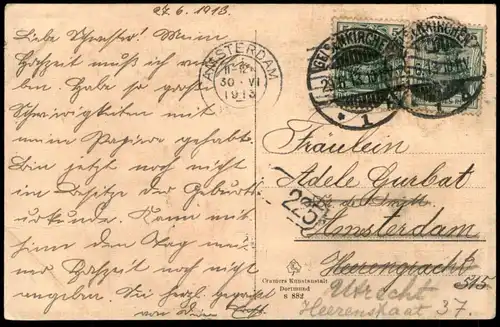 27.6.1913.
Liebe Schwester! Mein
Hochzeit muß ich noch
haben. Habe so große
Schwierigkeiten mit
mein Papiere gehabt.
Bin jetzt noch nicht
im Besitze der Geburts-
urkunde. Kann mit-
hin den Tag meiner
Hochzeit noch nicht
angeben. Sei herzl. gegrüßt
von Dein
AMSTERDAM
30 VI
1913
GELSENKIRCHEN
1
GELSENKIRCHEN
1
Fräulein
Adele Gurbat
Amsterdam
Heerengracht 515
Utrecht
Heerenstaat 37.
Cramers Kunstanstalt
Dortmund
S 882